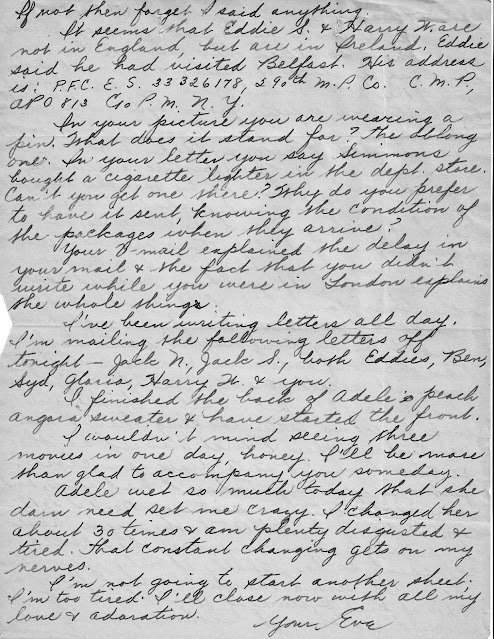 If not then forget I said anything.
It seems that Eddie S. & Harry W. are
not in England, but are in Ireland. Eddie
said he had visited Belfast. His address
is: P.F.C. E. S. 33326178, 290th M.P. Co. C.M.P.,
APO 813 C/o P.M. N.Y.
In your picture you are wearing a
pin. What does it stand for? the oblong
one. In your letter you say Simmons
bought a cigarette lighter in the dept. store.
Can't you get one there? Why do you prefer
to have it sent, knowing the condition of
the packages when they arrive?
Your V-mail explained the delay in
your mail & the fact that you didn't
write while you were in London explains
the whole things.
I've been writing letters all day.
I'm mailing the following letters off
tonight — Jack N., Jack S., both Eddies, Ben,
Syd, Gloria, Harry W. & you.
I finished the back of Adele's peach
angora sweater & have started the front.
I wouldn't mind seeing three
movies in one day, honey. I'll be more
than glad to accompany you someday.
Adele wet so much today that she
darn need set me crazy. I changed her
about 30 times & am plenty disgusted &
tired. That constant changing gets on my
nerves.
I'm not going to start another sheet.
I'm too tired. I'll close now with all my
love & adoration.
Your Eve